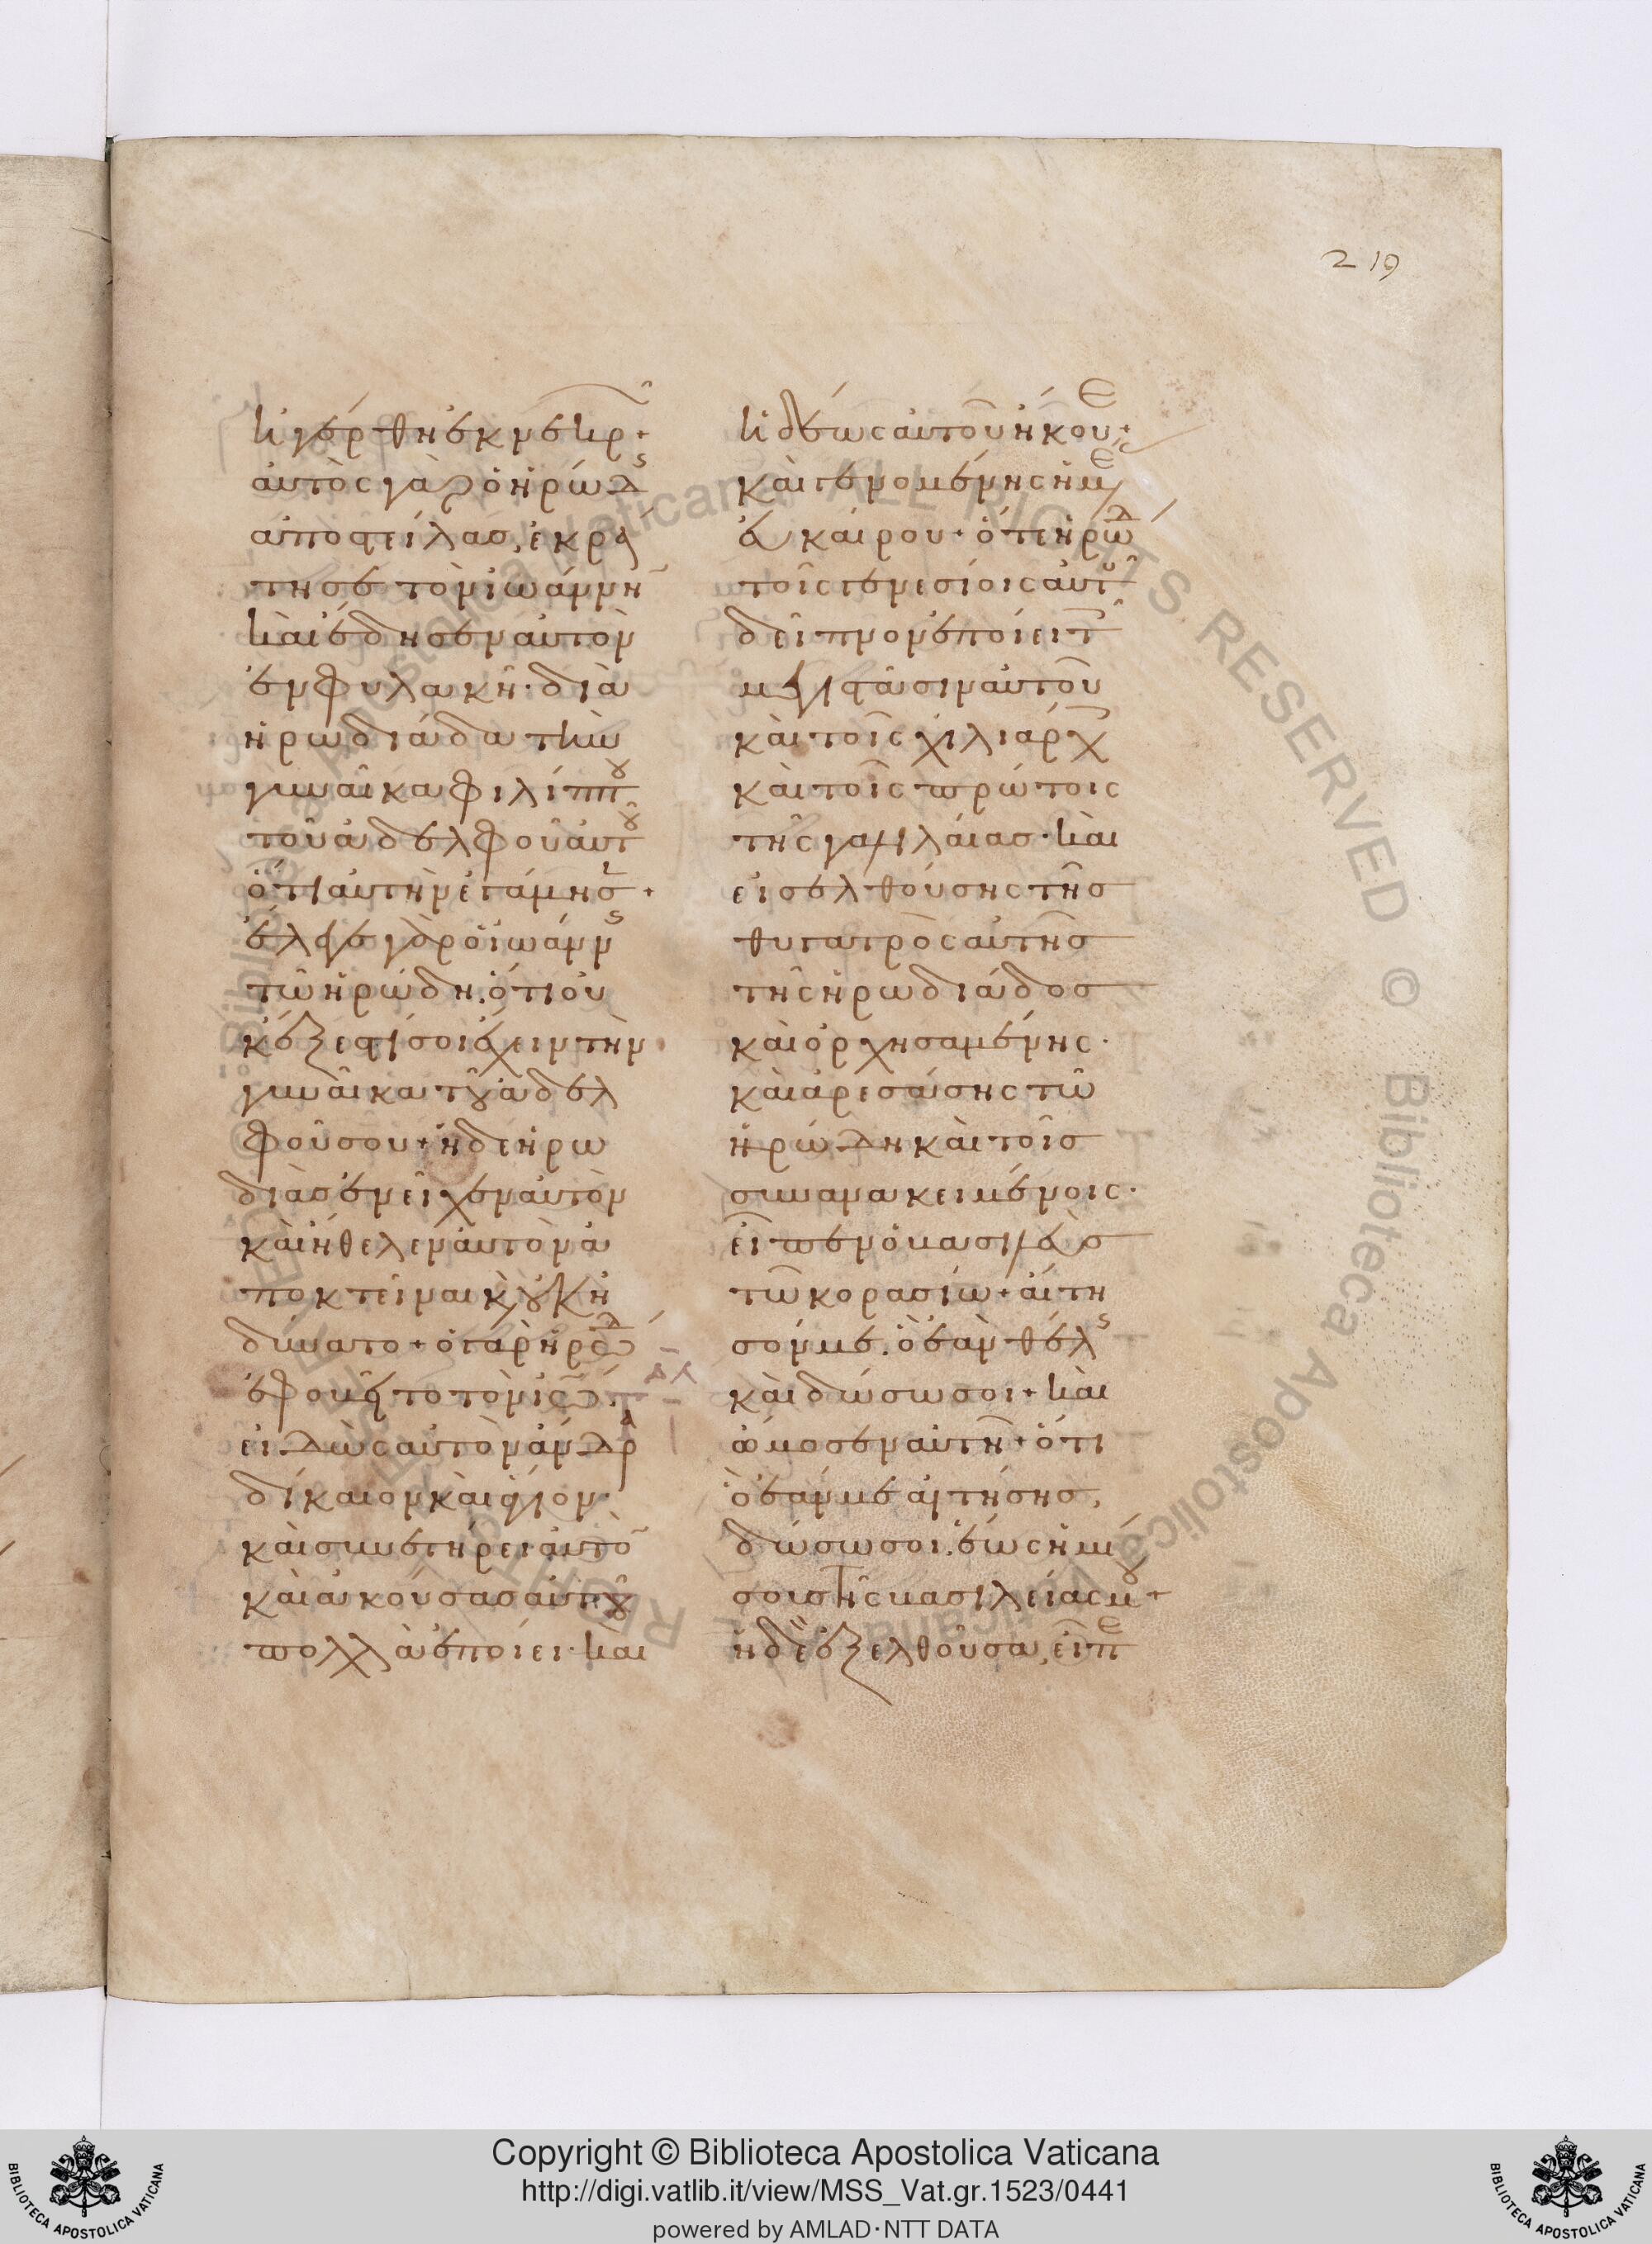 219
ἠγέρθη ἐκ νεκρῶ+
αὐτὸς γὰρ ὁ ἡρώδ
ἀποστείλας, ἐκρά
τησε τὸν ἰωάννη
καὶ ἔδησεν αὐτὸν
ἐν φυλακῆ· διὰ
ἡρωδιάδα τὴν
γυναῖκα φιλίππου
τοῦ ἀδελφοῦ αὐτοῦ
ὅτι αὐτὴν ἐγάμησ+
ἔλεγε γὰρ ὁ ἰωάνν
τῶ ἡρώδη. ὅτι οὐ
κ ἔξεστί σοι ἔχειν τὴν
γυναῖκα τοῦ ἀδελ
φοῦ σου+ ἡ δὲ ἡρω
διὰς ἐνεῖχεν αὐτὸν
καὶ ἤθελεν αὐτὸν ἀ
ποκτεῖναι κ οὐκ ἠ
δύνατο+ ὁ γὰρ ἡρώδ
ἐφοβεῖτο τὸν ἰω
εἰδὼς αὐτὸν ἄνδρα
δίκαιον καὶ ἅγιον·
καὶ συνετήρει αὐτὸ
καὶ ἀκούσας αὐτοῦ
πολλὰ ἐποίει· καὶ
ἡδέως αὐτοῦ ἤκουε+
καὶ γενομένης ἡμε
εὐκαίρου+ ὅτε ἡρώδ
τοῖς γενεσίοις αὐτοῦ
δεῖπνον ἐποίει τ
μεγιστᾶσιν αὐτοῦ
καὶ τοῖς χιλιάρχ
καὶ τοῖς πρώτοις
τῆς γαλιλαίας· καὶ
εἰσελθούσης τῆς
θυγατρὸς αὐτῆς
τῆς ἡρωδιάδος
καὶ ὀρχησαμένης·
καὶ ἀρεσάσης τῶ
ἡρώδη καὶ τοῖς
συνανακειμένοις·
εἶπεν ὁ βασιλεὺς
τῶ κορασίω+ αἴτη
σόν με. ὃ ἐὰν θέλ
καὶ δώσω σοι+ καὶ
ὤμοσεν αὐτῆ+ ὅτι
ὃ ἐάν με αἰτήσης,
δώσω σοι. ἕως ἡμί
σους τῆς βασιλείας μου+
ἡ δὲ ἐξελθοῦσα, εἶπε
Copyright © Biblioteca Apostolica Vaticana
http://digi.vatlib.it/view/MSS_Vat.gr.1523/0441
powered by AMLAD·NTT DATA